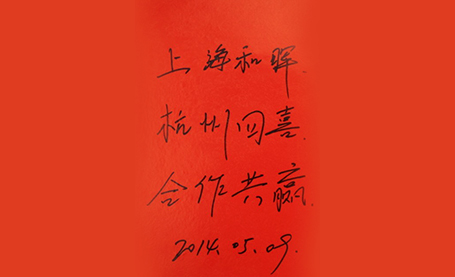 上海和晖
杭州四喜
合作共赢
2014.05.09.